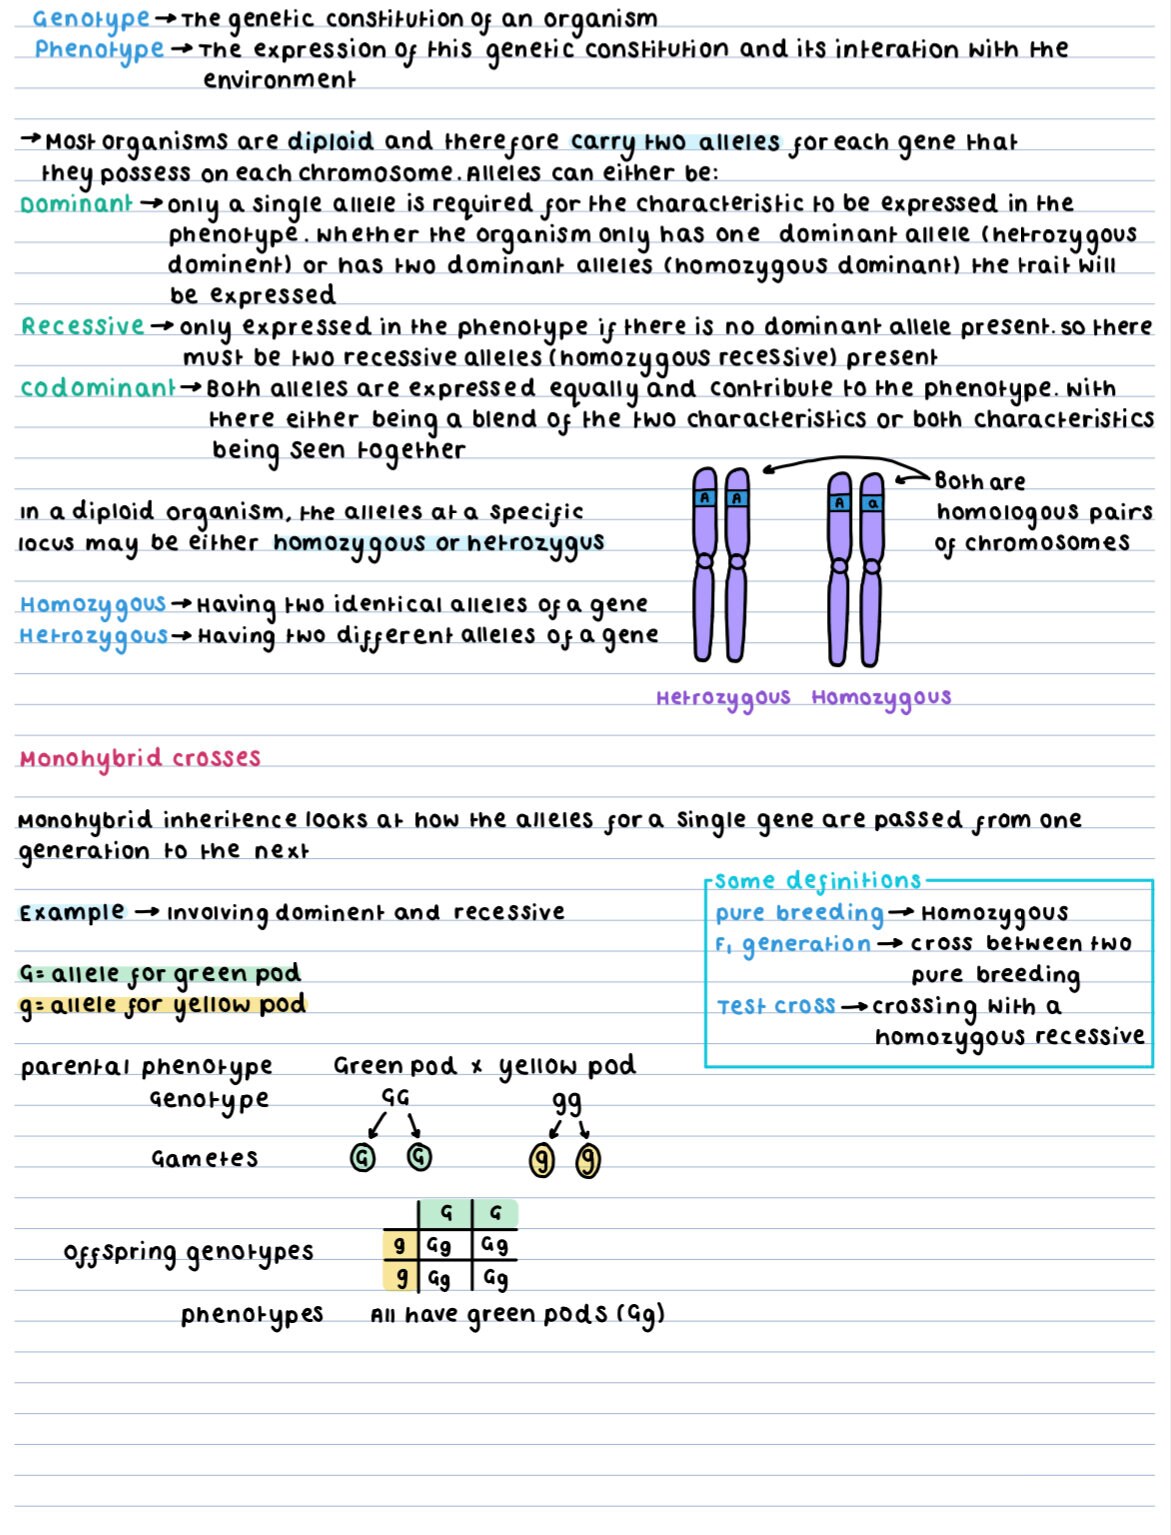 Genotype → The genetic constitution of an organism
Phenotype → The expression of this genetic constitution and its interation with the
environment
→ Most organisms are diploid and therefore carry two alleles for each gene that
they possess on each chromosome. Alleles can either be:
Dominant → only a single allele is required for the characteristic to be expressed in the
phenotype. Whether the organism only has one dominant allele (hetrozygous
dominent) or has two dominant alleles (homozygous dominant) the trait will
be expressed
Recessive → only expressed in the phenotype if there is no dominant allele present. so there
must be two recessive alleles (homozygous recessive) present
codominant → Both alleles are expressed equally and contribute to the phenotype. With
there either being a blend of the two characteristics or both characteristics
being seen together
In a diploid organism, the alleles at a specific
locus may be either homozygous or hetrozygus
Homozygous → Having two identical alleles of a gene
Hetrozygous → Having two different alleles of a gene
A A A a
Both are
homologous pairs
of chromosomes
Hetrozygous Homozygous
Monohybrid crosses
Monohybrid inheritence looks at how the alleles for a single gene are passed from one
generation to the next
Example → Involving dominent and recessive
G = allele for green pod
g = allele for yellow pod
some definitions
pure breeding → Homozygous
F₁ generation → cross between two
pure breeding
Test cross → crossing with a
homozygous recessive
parental phenotype Green pod x yellow pod
Genotype GG gg
Gametes G G g g
G G
offspring genotypes g Gg Gg
g Gg Gg
phenotypes All have green pods (Gg)